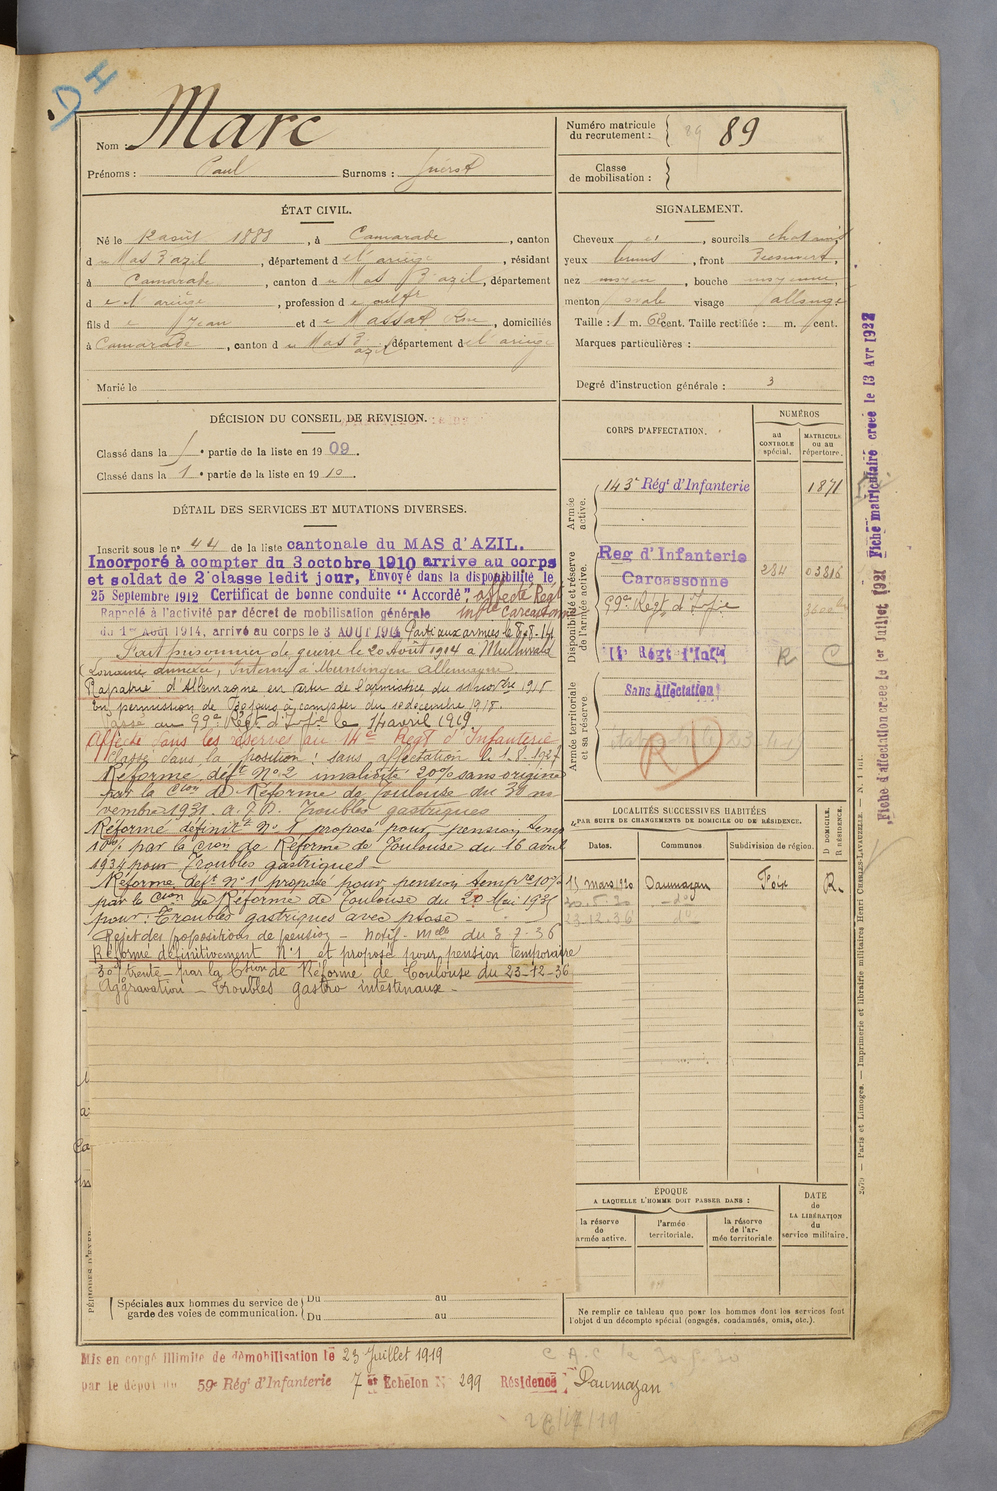 DI
Nom : Marc
Prénoms : Paul Surnoms :
Numéro matricule du recrutement : 89 89
Classe de mobilisation :
ÉTAT CIVIL.
Né le 12 août 1888, à Camarade, canton
du Mas d'azil, département de l'ariège, résidant
à Camarade, canton du Mas d'azil, département
de l'ariège, profession de cultr
fils de Jean et de Massat, domiciliés
à Camarade, canton du Mas d'azil, département de l'ariège
Marié le
SIGNALEMENT.
Cheveux et, sourcils chatains,
yeux, front Découvert,
nez moyen, bouche moyenne,
menton ovale visage allongé
Taille : 1 m. 62 cent. Taille rectifiée : m. cent.
Marques particulières :
Degré d'instruction générale : 3
DÉCISION DU CONSEIL DE REVISION.
Classé dans la 1e partie de la liste en 1909.
Classé dans la 1e partie de la liste en 1910.
DÉTAIL DES SERVICES ET MUTATIONS DIVERSES.
Inscrit sous le n° 44 de la liste cantonale du MAS d'AZIL.
Incorporé à compter du 3 octobre 1910 arrive au corps
et soldat de 2e classe ledit jour, Envoyé dans la disponibilité le
25 Septembre 1912 Certificat de bonne conduite "Accordé". affecté Régt
Rappelé à l'activité par décret de mobilisation générale Infie Carcassonne
du 1er Août 1914, arrivé au corps le 3 AOUT 1914 Parti aux armées le 8-8-14
Fait prisonnier de guerre le 20 Août 1914 à
(Lorraine annexée), Interné à Munsingen Allemagne.
Rapatrié d'Allemagne en vertu de l'armistice du 11 novbre 1918
En permission de jours à compter du 10 decembre 1918.
Passé au 99e Régt d'Infie le 14 avril 1919.
Affecté dans les réserves au 14e Regt d'Infanterie
Classé dans la position : sans affectation le 1-8-1927
Réformé déft N°2 invalidité 20% sans origine
par la Cion de Réforme de Toulouse du 30 no
vembre 1931. Troubles gastriques
Réformé définitt N°1 proposé pour pension temp
10% par la Cion de Réforme de Toulouse du 16 avril
1934 pour Troubles gastriques
Réformé déft N°1 proposé pour pension tempre 10%
par le Cion de Réforme de Toulouse du 20 Mai 1935
pour : Troubles gastriques avec ptose -
Rejet des propositions de pension - Notif. Melle du 3-7-36
Réformé définitivement N°1 et proposé pour pension temporaire
30% trente - par la Csion de Réforme de Toulouse du 23-12-36
Aggravation - Troubles gastro intestinaux -
CORPS D'AFFECTATION.
NUMÉROS
au CONTROLE spécial.
MATRICULE ou au répertoire.
Armée active.
143e Régt d'Infanterie 1871
Disponibilité et réserve de l'armée active.
Reg d'Infanterie
Carcassonne 284 03816
99e Regt d'Infie
14e Régt d'Infie R C
Armée territoriale et sa réserve
Sans Affectation
RD
LOCALITÉS SUCCESSIVES HABITÉES
PAR SUITE DE CHANGEMENTS DE DOMICILE OU DE RÉSIDENCE.
D DOMICILE. R RÉSIDENCE.
Dates. Communes Subdivision de région.
15 mars 1920 Daumazan Foix R
30.5.30 - do
23-12-36 do
ÉPOQUE
A LAQUELLE L'HOMME DOIT PASSER DANS :
DATE de LA LIBÉRATION du service militaire.
la réserve de armée active.
l'armée territoriale.
la réserve de l'armée territoriale
PÉRIODES D'EXER
Spéciales aux hommes du service de garde des voies de communication.
Du au
Du au
Ne remplir ce tableau que pour les hommes dont les services font
l'objet d'un décompte spécial (engagés, condamnés, omis, etc.).
Mis en congé illimité de démobilisation le 23 Juillet 1919
par le dépôt du 59e Régt d'Infanterie 7e Echelon N° 299 Résidence Daumazan
C.A.C. le 30-5-30
Fiche matriculaire créée le 13 Avr 1922
Fiche d'affectation créée le 1er Juillet 1921
2079 — Paris et Limoges. — Imprimerie et librairie militaires Henri CHARLES-LAVAUZELLE. — N.